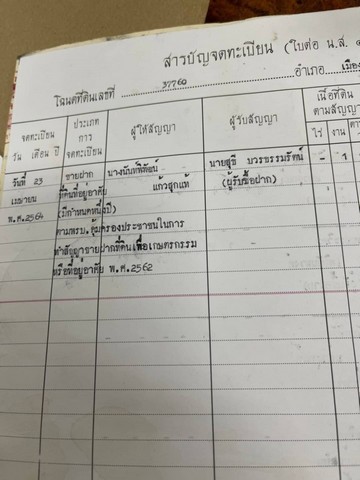 สารบัญจดทะเบียน (ใบต่อ น.ส. ๔
โฉนดที่ดินเลขที่ 37760 อำเภอ เมือง
จดทะเบียน
วัน เดือน ปี
ประเภท
การ
จดทะเบียน
ผู้ให้สัญญา
ผู้รับสัญญา
เนื้อที่ดิน
ตามสัญญา
ไร่ งาน
วันที่ 23 ขายฝาก นางนันทพิพัฒน์ นายสุธี บวรธรรมรัตน์ - 1
เมษายน ที่ดินที่อยู่อาศัย แก้วลูกแท้ (ผู้รับซื้อฝาก)
พ.ศ.2564 (มีกำหนดหนึ่งปี)
ตามพรบ.คุ้มครองประชาชนในการ
ทำสัญญาขายฝากที่ดินเพื่อเกษตรกรรม
หรือที่อยู่อาศัย พ.ศ.2562